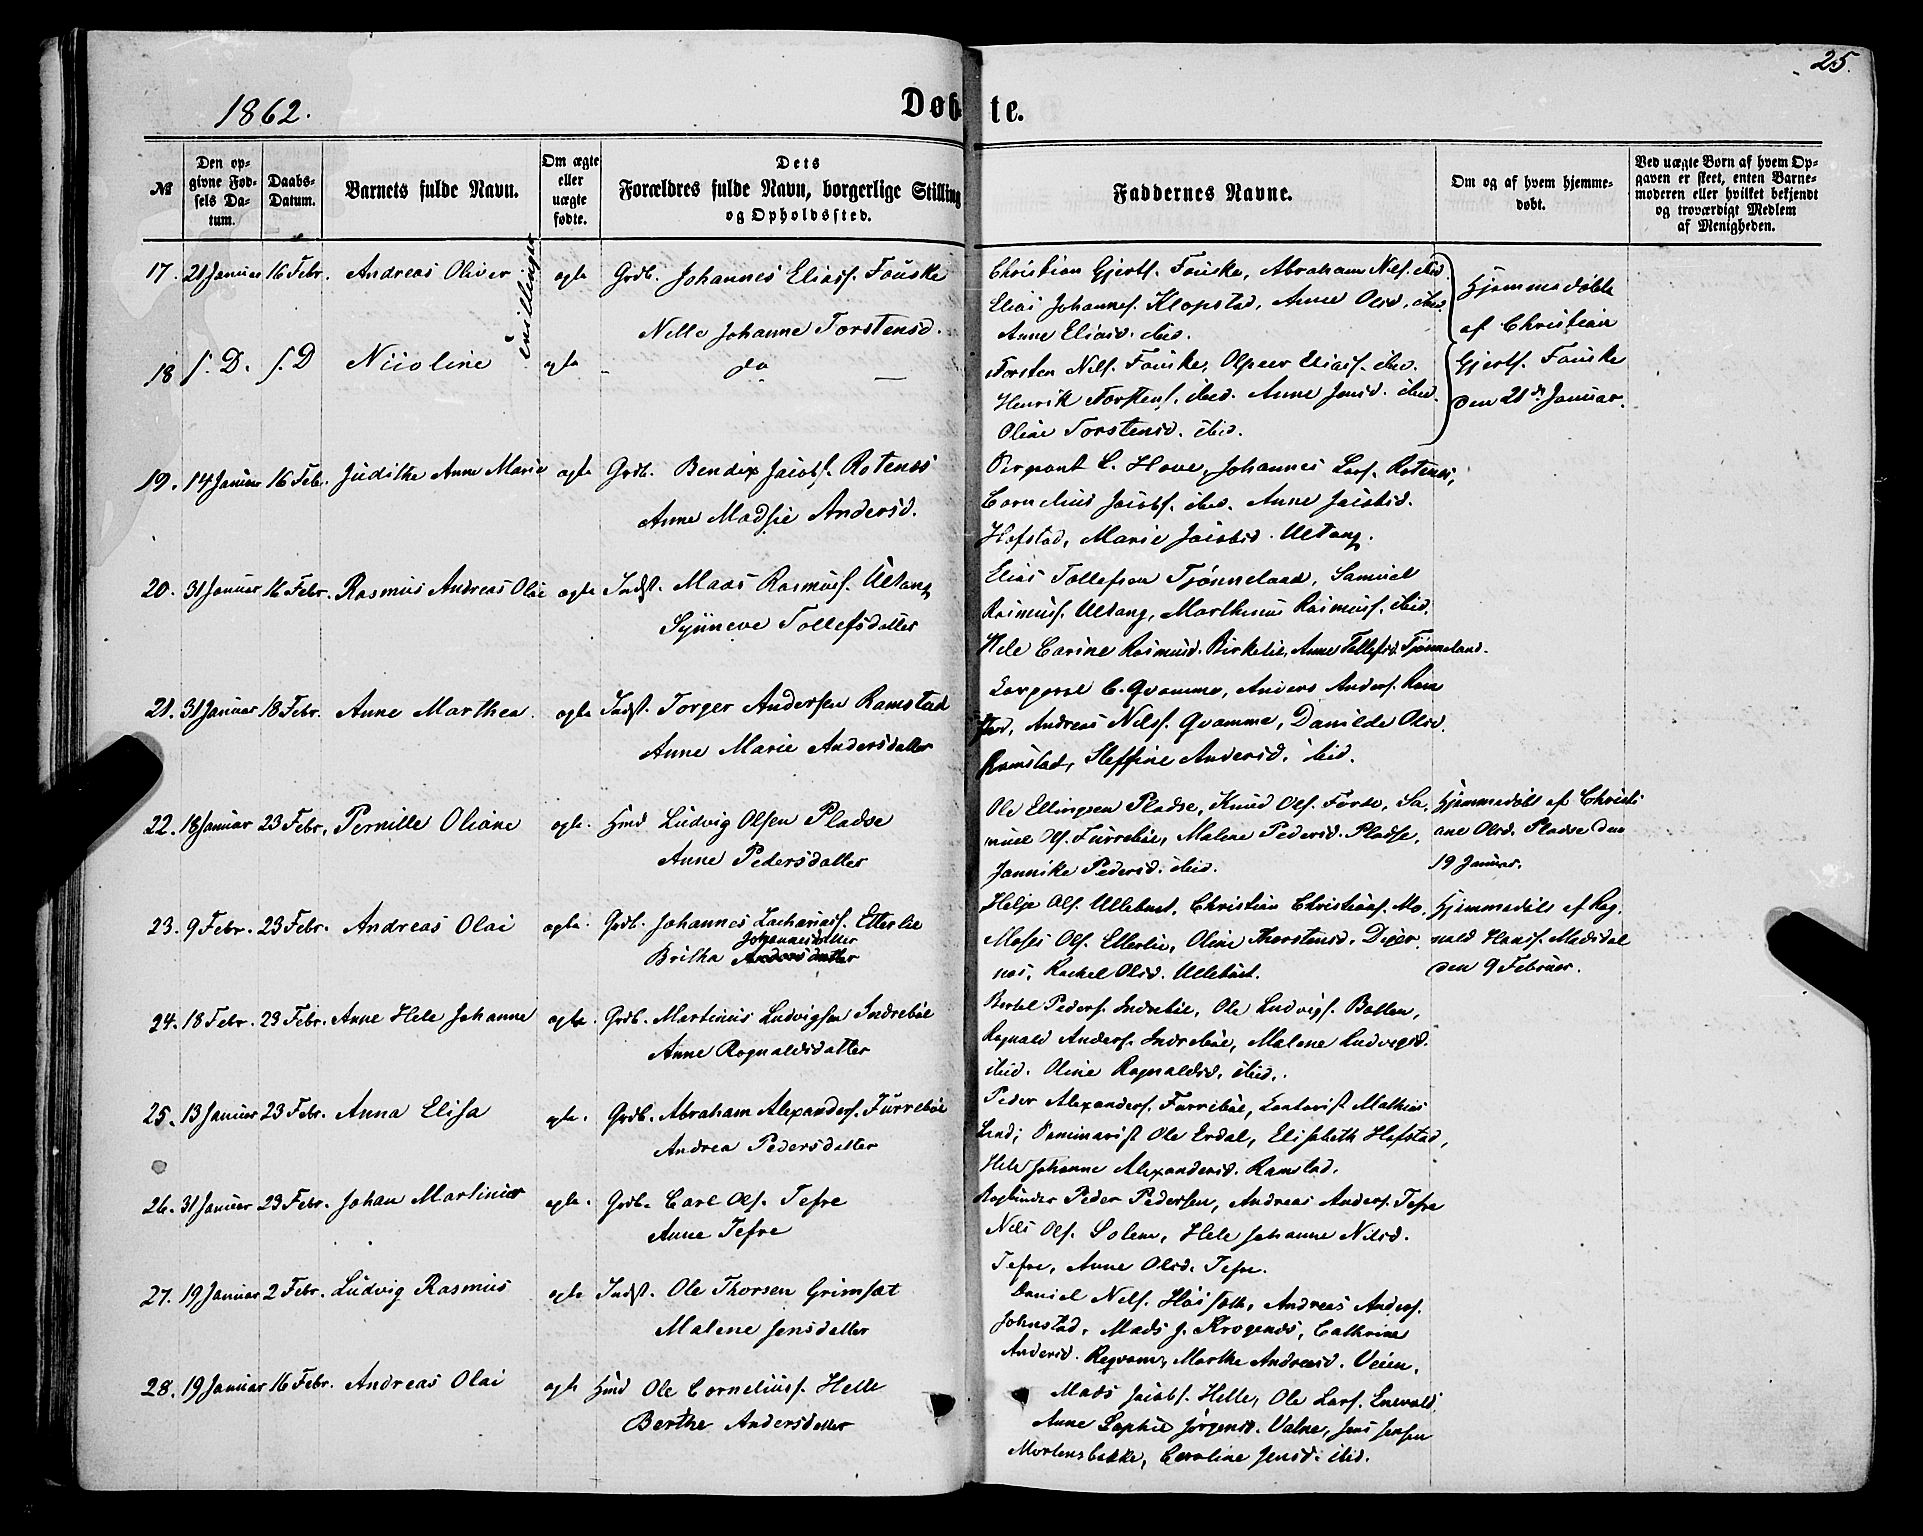 25.
1862.
Døbte.
№
Den opgivne Fødsels Datum.
Daabs-Datum.
Barnets fulde Navn.
Om ægte eller uægte fødte.
Dets Forældres fulde Navn, borgerlige Stilling og Opholdssted.
Faddernes Navne.
Om og af hvem hjemmedøbt.
Ved uægte Børn af hvem Opgaven er skeet, enten Barnemoderen eller hvilket bekjendt og troværdigt Medlem af Menigheden.
17. 21 Januar 16 Febr. Andreas Oliver ægte Grdb. Johannes Eliass. Fauske
Nille Johanne Torstensd.
tvillinger
Christian Gjerts. Fauske, Abraham Nils. ibid.
Elias Johannes. Klopstad, Anne Olsd. ibid.
Anne Eliasd. ibid.
Hjemmedøbte
af Christian
Gjerts. Fauske
den 21de Januar.
18 s. D. s. D Nicoline ægte do
Torsten Nils. Fauske, Olpeer Eliass. ibid.
Henrik Torstens. ibid. Anne Jensd. ibid.
Oline Torstensd. ibid.
19. 14 Januar 16 Febr. Judithe Anne Marie ægte Grdb. Bendix Jacobs. Rotenes
Anne Madsie Andersd.
Sergeant L. Hove, Johannes Lars. Rotenes,
Cornelius Jacobs. ibid. Anne Jacobsd.
Hofstad, Marie Jacobsd. Ultang.
20. 31 Januar 16 Febr. Rasmus Andreas Olai ægte Indst. Maas Rasmuss. Ultang
Synneve Tollefsdatter
Elias Tollefsen Tjønneland, Samuel
Rasmuss. Ultang, Marthinus Rasmuss. ibid.
Hele Carine Rasmusd. Birkelie, Anne Tollefsd. Tjønneland.
21. 31 Januar 18 Febr. Anne Marthea. ægte Indst. Torger Andersen Ramstad
Anne Marie Andersdatter
Corporal C. Qvamme, Anders Anders. Ram
stad, Andreas Nilss. Qvamme, Danilde Olsd.
Ramstad, Steffine Andersd. ibid.
22. 18 Januar 23 Febr. Pernille Oliane ægte Hmd Ludvig Olsen Pladse
Anne Pedersdatter
Ole Ellingsen Pladse, Knud Ols. Førde, Sa
muel Ols. Furrebøe, Malene Pedersd. Pladse,
Jannike Pedersd. ibid.
Hjemmedøbt af Christi
ane Olsd. Pladse den
19 Januar.
23. 9 Febr. 23 Febr. Andreas Olai ægte. Grdb. Johannes Zachariass. Etterlie
Johannesdatter
Britha Andersdatter
Helje Ols. Ullebust, Christian Christians. Mo,
Moses Ols. Etterlie, Oline Thorstensd.
nes, Rachel Olsd. Ullebust.
Hjemmedøbt af Rag
nald Hans. Madsdal
den 9 Februar.
24. 18 Febr. 23 Febr. Anne Hele Johanne ægte. Grdb. Martinus Ludvigsen Indrebøe
Anne Ragnaldsdatter
Bertel Peders. Indrebøe, Ole Ludvigs. Botten,
Ragnald Anders. Indrebøe, Malene Ludvigsd.
ibid. Oline Ragnaldsd. ibid.
25. 13 Januar 23 Febr. Anna Elisa ægte. Grdb. Abraham Alexanders. Furrebøe
Andrea Pedersdatter
Peder Alexanders. Furrebøe, Contorist Mathias
Lind; Seminarist Ole Erdal, Elisabeth Hofstad,
Hele Johanne Alexandersd. Ramstad.
26. 31 Januar 23 Febr. Johan Martinus ægte. Grdb. Carl Ols. Tefre
Anne Tefre
Bogbinder Peder Pedersen, Andreas Anders. Tefre
Nils Ols. Solem, Hele Johanne Nilsd.
Tefre, Anne Olsd. Tefre.
27. 19 Januar 2 Febr. Ludvig Rasmus ægte Indst. Ole Thorsen Grimset
Malene Jensdatter
Daniel Nils. Høisæth, Andreas Anders.
Johnstad, Mads J. Krogenes, Cathrine
Andersd. Martha Andreasd. Veien.
28. 19 Januar 16 Febr. Andreas Olai ægte Hmd Ole Corneliuss. Helle
Berthe Andersdatter
Mads Jacobs. Helle, Ole Lars. Enevold,
Anne Sophie Jørgensd. Valne, Jens Jensen
Mortensbakke, Caroline Jensd. ibid.